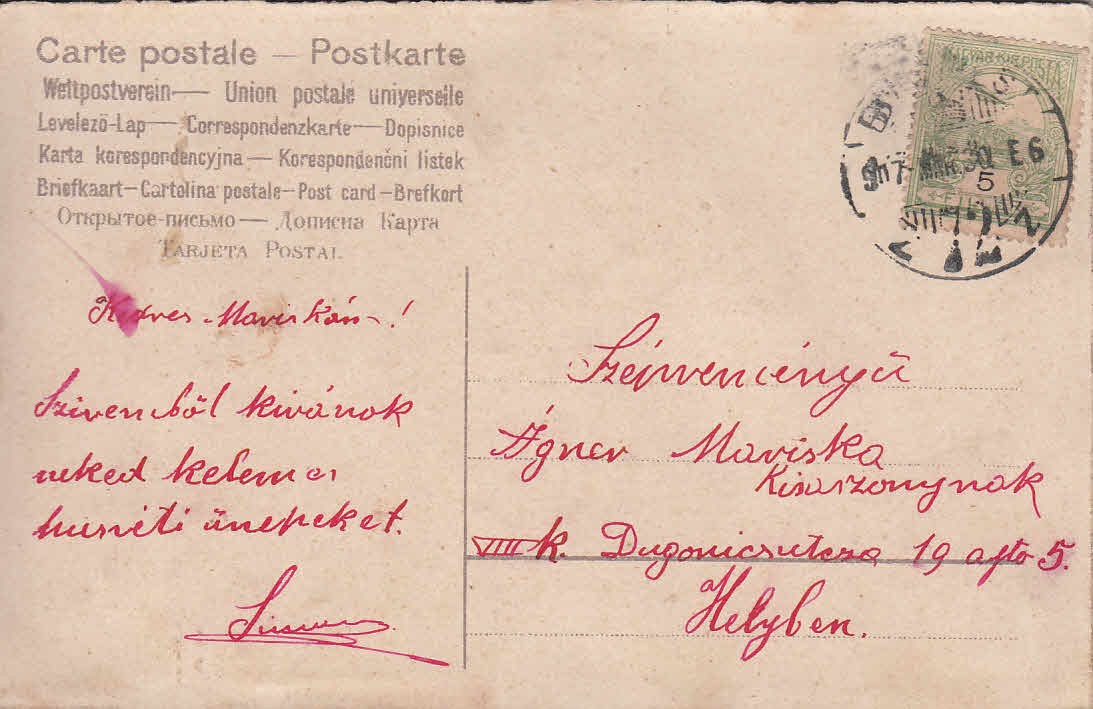 Carte postale — Postkarte
Weltpostverein — Union postale universelle
Levelező-Lap — Correspondenzkarte — Dopisnice
Karta korespondencyjna — Korespondenčni listek
Briefkaart — Cartolina postale — Post card — Brefkort
Открытое-письмо — Дописна Карта
TARJETA POSTAL
MAGYAR KIR. POSTA
917 MÁR. 30 E6
5
Kedves Mariskám!
Szivemből kivánok
neked kelemes
husvéti ünepeket.
Ágner Mariska
Kisaszonynak
VIII k. Dugonicsutcza 19 ajto 5.
Helyben.